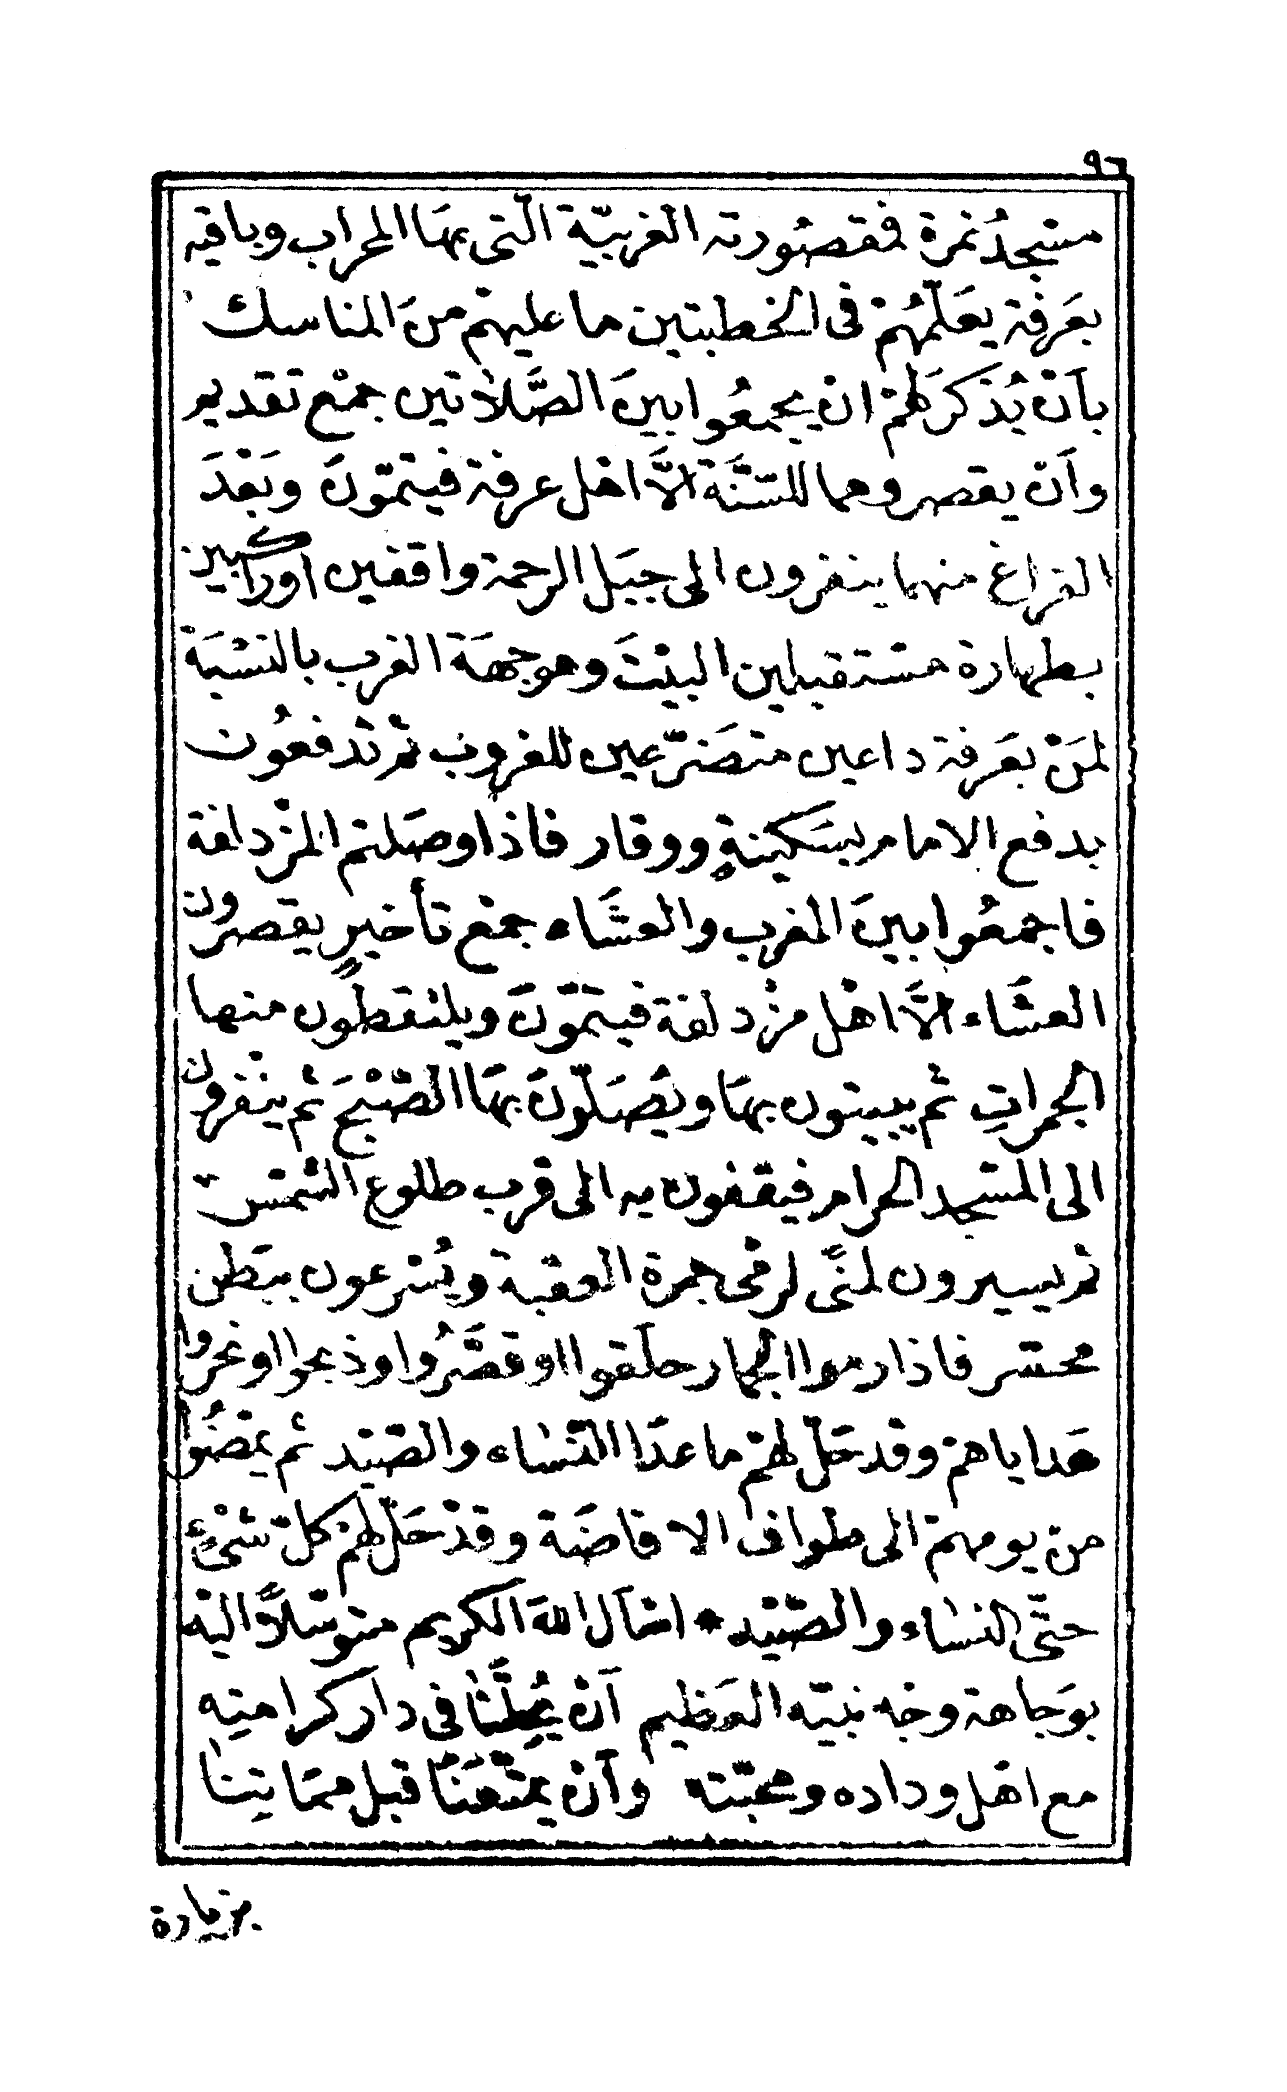 ٩٦
مسْجدُ نمرة فمقصُورته الغربيّة الّتى بهَا المحراب وباقيه
بعَرفة يعَلّمهُمْ فى الخطبتين ما عليهمْ منَ المناسك
بأنْ يُذكرَ لهمْ انْ يجمعُوا بينَ الصَّلاتين جمْع تقديم
وأنْ يقصروهما للسّنَّة الاَّ اهْل عرفة فيتمّونَ وبَعْدَ
الفراغ منهما ينفرون الى جبَل الرحمة واقفين اوراكبين
بطهارة مسْتقبلين البيْتَ وهو جهَة الغرب بالنسْبَة
لمَنْ بعَرفة داعين متضَرّعين للغروب ثم تدْفعُون
بدفع الامام بسَكينةٍ ووقار فاذا وصَلتم المزْدلفة
فاجمعُوا بينَ المغرب والعشَاء جمْع تأخيرٍ يقصرون
العشَاء الاَّ اهْل مزْدلفة فيتمّونَ ويلتقطون منها
الجمراتِ ثم يبيتون بهَا ويُصَلّونَ بهَا الصّبْحَ ثم ينْفرون
الى المسْجد الحرام فيقفون به الى قرب طلوع الشمس
ثم يسيرون لمنًى لرمْى جمرة العقبة ويُسْرعون ببَطن
محسّر فاذا رموا الجمار حلَقوا او قصَّرُوا وذبحوا او نحروا
هَداياهمْ وقد حَلّ لهمْ ما عدَا النّسَاء والصّيْد ثم يمْضُوا
منْ يومهمْ الى طواف الافاضَة وقدْ حَلّ لهمْ كلّ شىْءٍ
حتّى النسَاء والصّيْد * اسْأل اللهَ الكريم متوسّلاً اليْه
بوَجاهة وجْه نبيّه العَظيم أنْ يُحِلَّنَا فى دار كرامتِه
مع اهْل وداده ومحبّته وأنْ يمَتّعَنَا قبل ممَاتِنَا
بزيارة